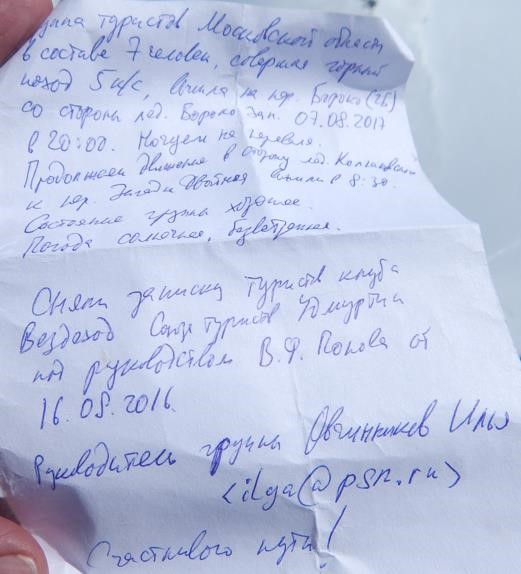 группа туристов Московской области
в составе 7 человек, совершая горный
поход 5 к/с, вышла на пер. Бороко (2Б)
со стороны лед. Бороко Зап. 07.08.2017
в 20:00. Ночуем на перевале.
Продолжаем движение в сторону лед.
к пер. Двойная вышли в 8:30.
Состояние группы хорошее.
Погода солнечная, безветренная.
Сняли записку туристов клуба
Вездеход Союз туристов Удмуртии
под руководством В.Ф. Попова от
16.08.2016.
Руководитель группы Овчинников Илья
<ilga@psn.ru>
Счастливого пути!